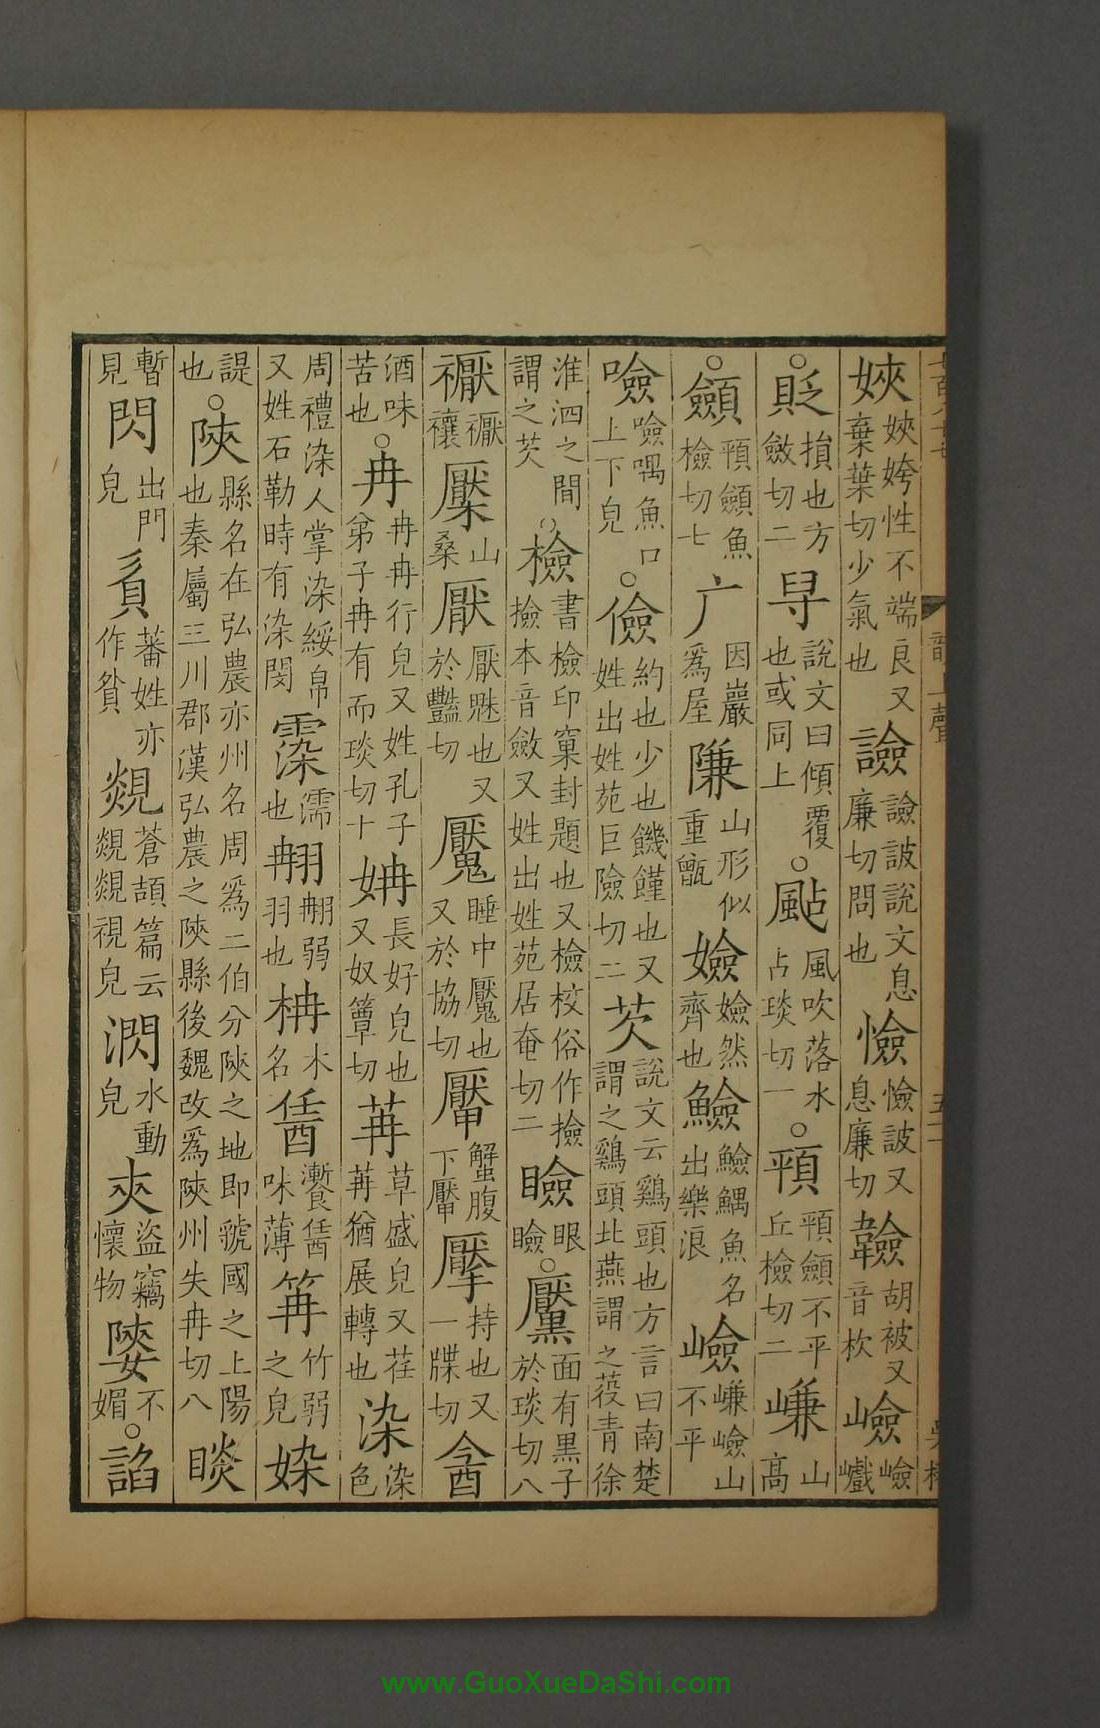 㛍㛍姱性不端良又棄葉切少氣也譣譣詖說文息廉切問也憸憸詖又息廉切韐胡被又音杴嶮嶮巇
○貶損也方斂切二𢑏說文曰傾覆也或同上○颭風吹落水占琰切一○顩不平丘檢切二㟻山高
○顩魚檢切七广因巖爲屋隒山形似重甑嬐嬐然齊也鹼鰅魚名出樂浪嶮㟻嶮山不平
噞噞喁魚口上下皃○儉約也少也饑饉也又姓出姓苑巨險切二芡說文云鷄頭也方言曰南楚謂之鷄頭北燕謂之䓈青徐
淮泗之間謂之芡○檢書檢印窠封題也又檢校俗作撿撿本音斂又姓出姓苑居奄切二瞼眼瞼○黶面有黒子於琰切八
禳檿山桑厭厭魅也又於豔切魘睡中魘也又於協切蟹腹下擪持也又一牒切酓
酒味苦也○冉冉冉行皃又姓孔子弟子冉有而琰切十姌長好皃也又奴簟切苒草盛皃又荏苒猶展轉也染染色
周禮染人掌染綏帛又姓石勒時有染閔濡也弱羽也木名味薄竹弱之皃媣
諟也○陝縣名在弘農亦州名周爲二伯分陝之地即虢國之上陽也秦屬三川郡漢弘農之陝縣後魏改爲陝州失冉切八睒
暫見閃出門皃蕃姓亦作貧覢蒼頡篇云覢覢視皃水動皃㚒盜竊懷物不媚○諂
www.GuoXueDaShi.com